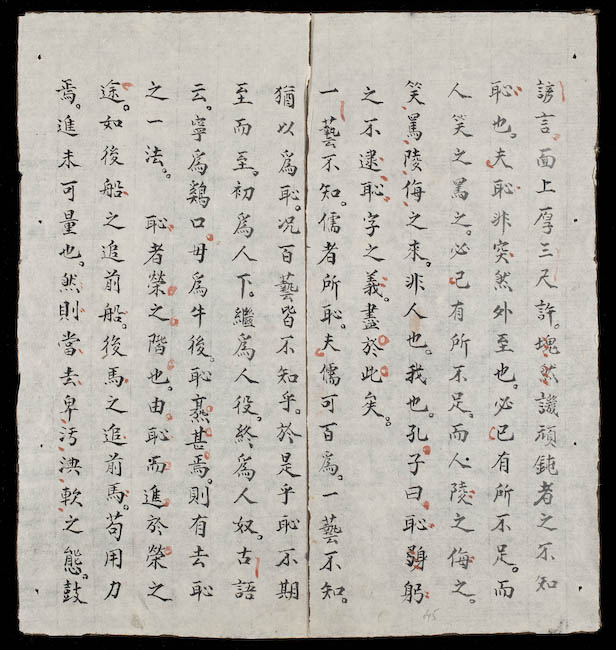 諺言。面上厚三尺許。塊然譏頑鈍者之不知
恥也。夫恥非突然外至也。必已有所不足。而
人笑之罵之。必已有所不足。而人陵之侮之。
笑罵陵侮之來。非人也。我也。孔子曰恥躳躬
之不逮。恥字之義。盡於此矣。
一藝不知。儒者所恥。夫儒可百爲。一藝不知。
猶以爲恥。況百藝皆不知乎。於是乎恥不期
至而至。初爲人下。繼爲人役。終爲人奴。古語
云。寧爲鷄口。毋爲牛後。恥甚焉。則有去恥
之一法。恥者榮之階也。由恥而進於榮之
途。如後船之追前船。後馬之追前馬。苟用力
焉。進未可量也。然則當去卑汚軟之態。鼓
45